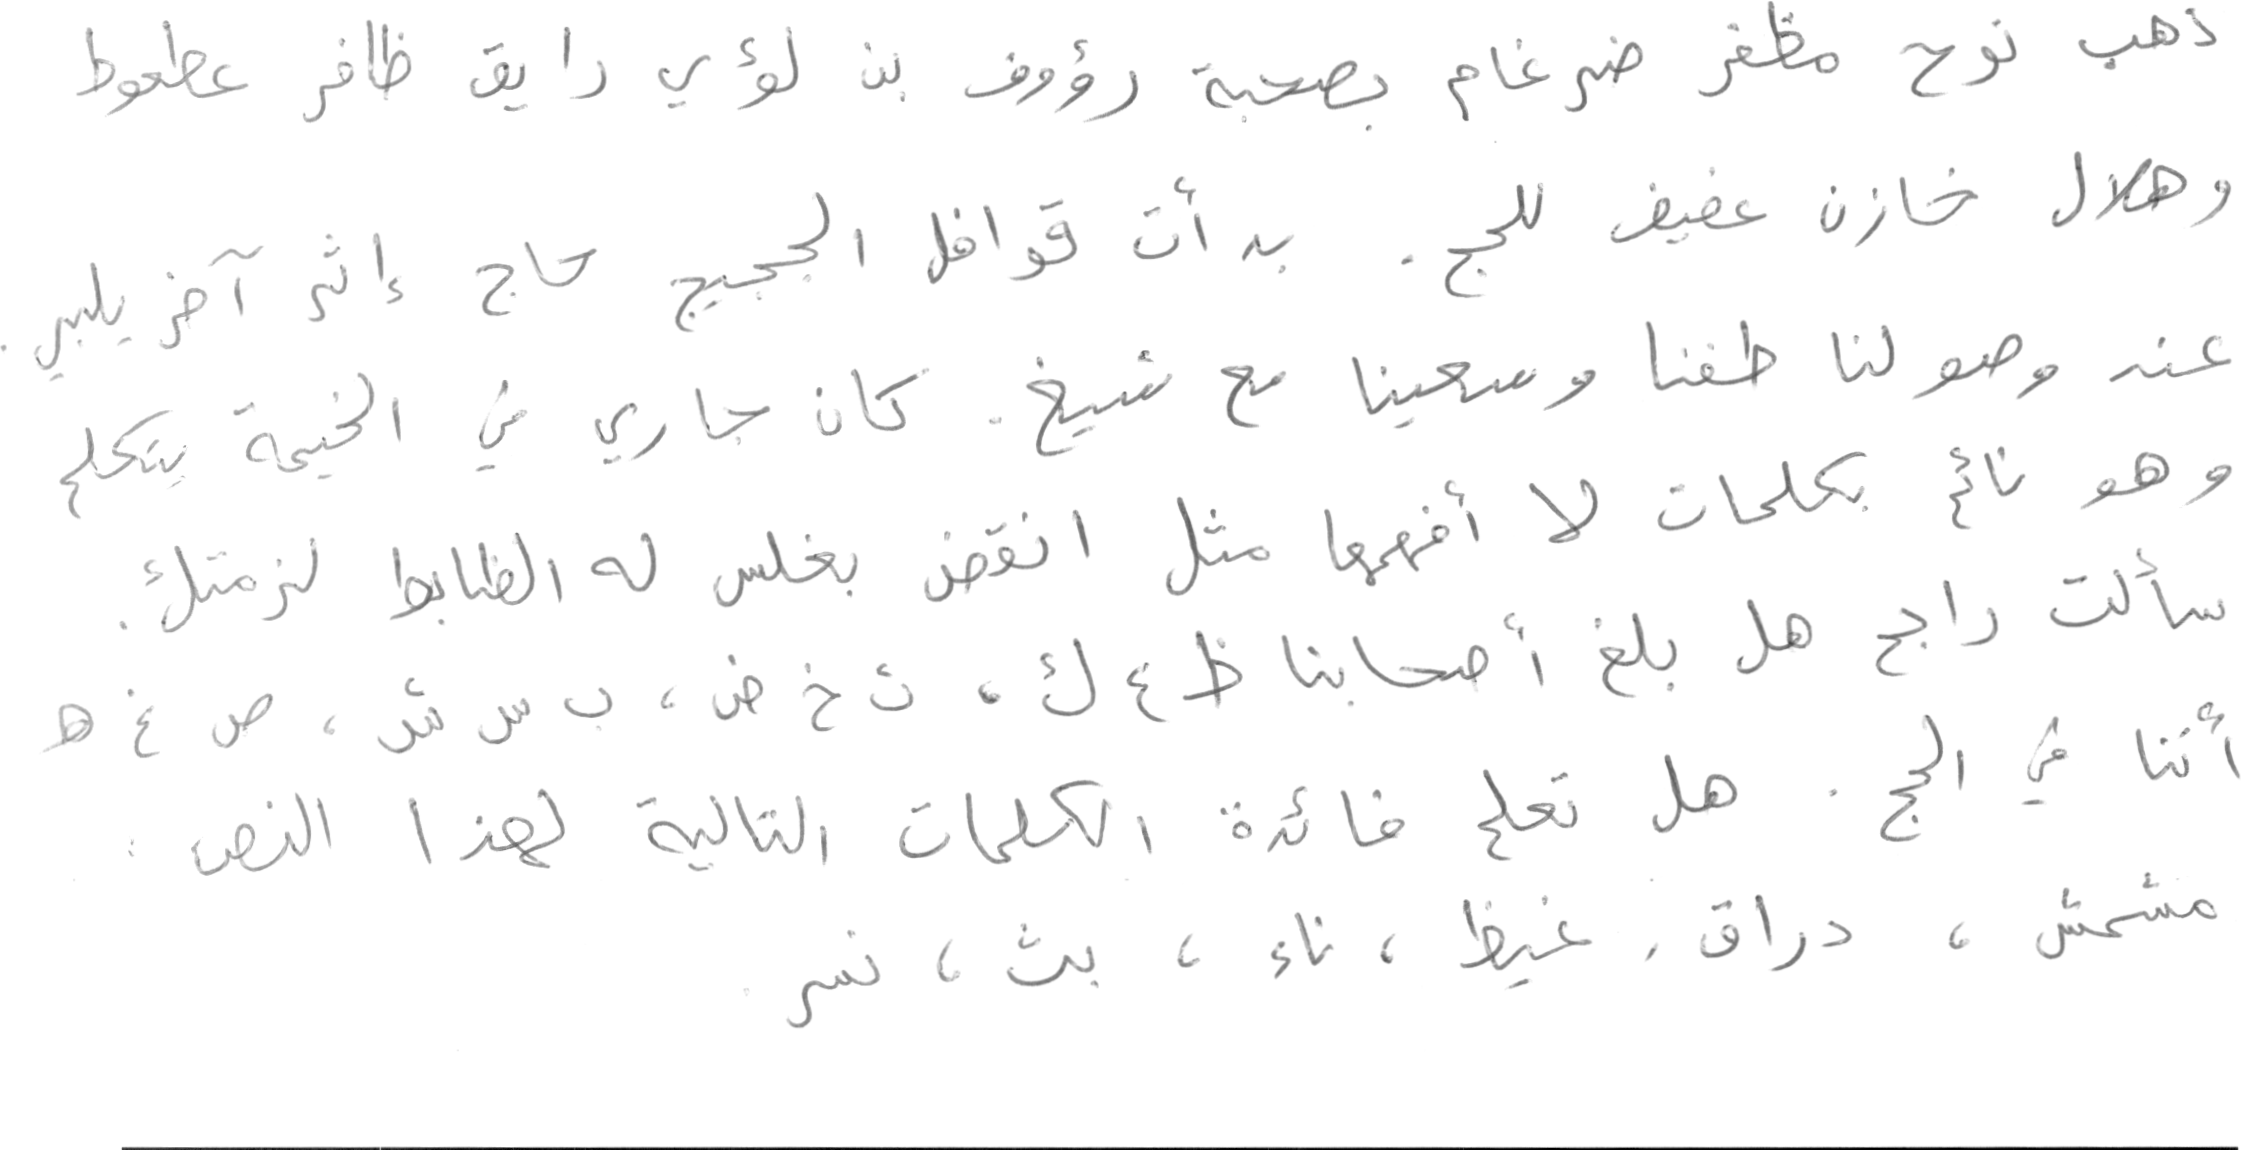 ذهب نوح مظفر ضرغام بصحبة رؤوف بن لؤي رايق ظافر عطعوط
وهلال خازن عفيف للحج . بدأت قوافل الحجيج حاج إثر آخر يلبي .
عند وصولنا طفنا وسعينا مع شيخ . كان جاري في الخيمة يتكلم
وهو نائم بكلمات لا أفهمها مثل انقض بغلس له الظابط لزمتك .
سألت راجح هل بلغ أصحابنا ظ ع ك ، ث خ ض ، ب س ش ، ص غ ه
أننا في الحج . هل تعلم فائدة الكلمات التالية لهذا النص :
مشمش ، دراق ، غيظ ، ناء ، بث ، نسر